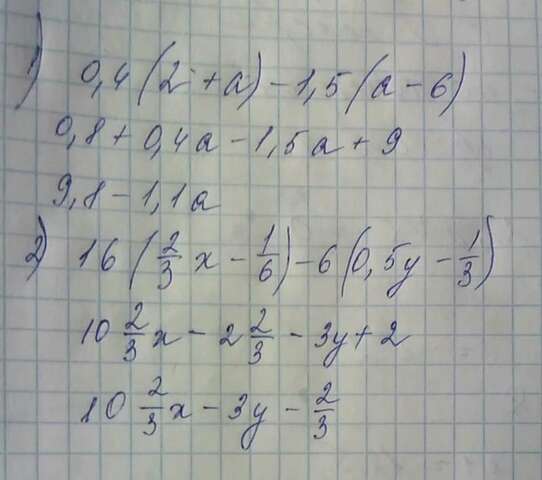 1) 0,4(2+a)-1,5(a-6)
0,8+0,4a-1,5a+9
9,8-1,1a
2) 16(2/3 x - 1/6)-6(0,5y - 1/3)
10 2/3 x - 2 2/3 - 3y+2
10 2/3 x - 3y - 2/3